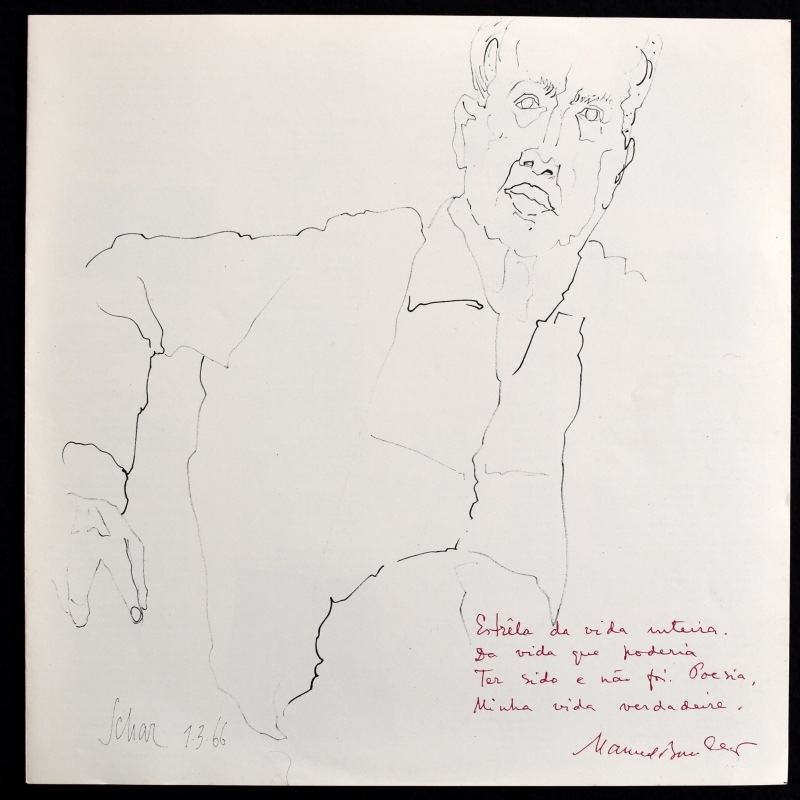 Estrêla da vida inteira.
Da vida que poderia
Ter sido e não foi. Poesia,
Minha vida verdadeira.
Manuel Bandeira
Schar 1.3.66